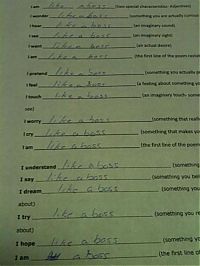 I am like a boss (two special characteristics- Adjectives)
I wonder like a boss (something you are actually curious
I hear like a boss (an imaginary sound)
I see like a boss (an imaginary sight)
I want like a boss (an actual desire)
I am like a boss (the first line of the poem
I pretend like a boss (something you actually
I feel like a boss (a feeling about something
I touch like a boss (an imaginary touch- some
see)
I worry like a boss (something that
I cry like a boss (something that makes
I am like a boss (the first line of the poem
I understand like a boss (something
I say like a boss (something you
I dream like a boss (something you
about)
I try like a boss (something you
about)
I hope like a boss (something
I am a boss (the first line of